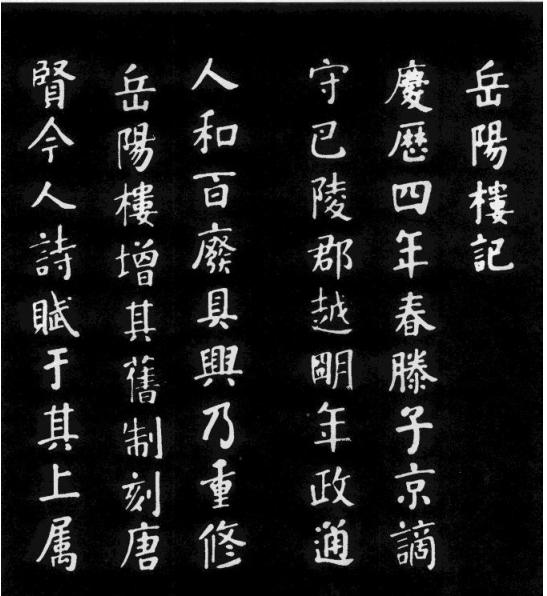 岳陽樓記
慶歷四年春滕子京謫
守巴陵郡越明年政通
人和百廢具興乃重修
岳陽樓增其舊制刻唐
賢今人詩賦于其上属